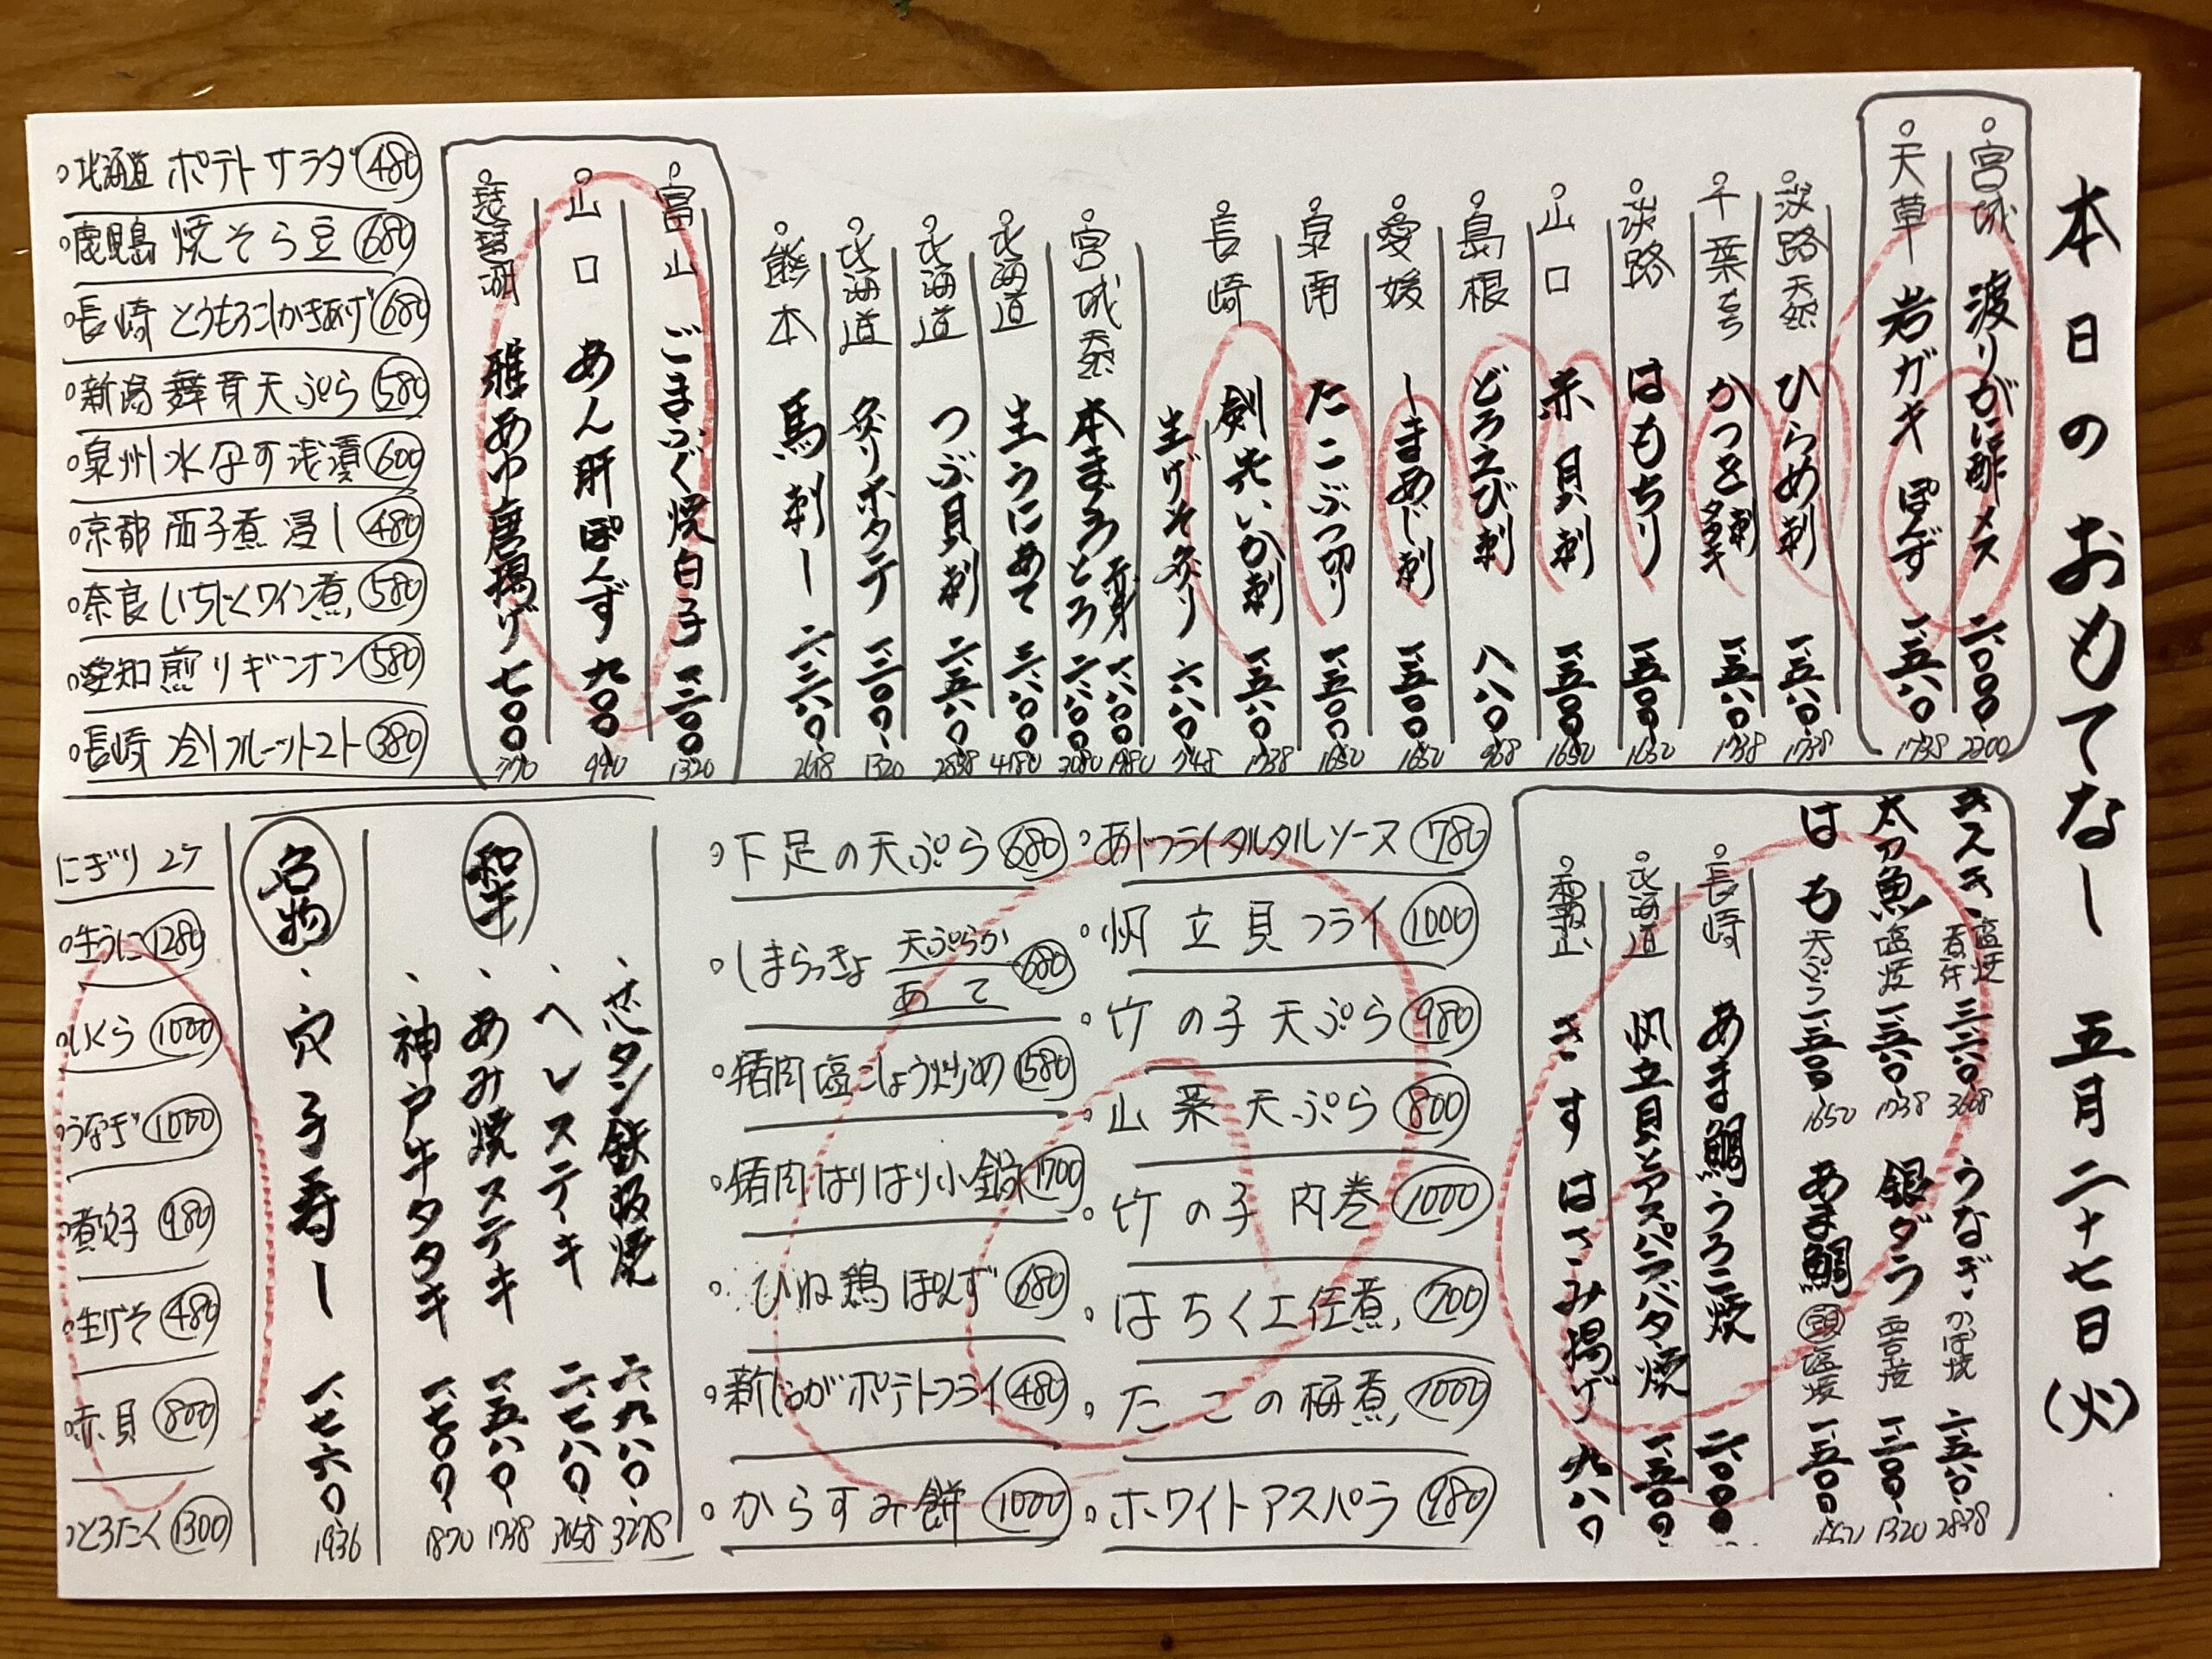 本日のおもてなし 五月二十七日(火)
宮城 渡りがに酢 メス 二、000 2200
天草 岩ガキ ぽんず 一、五八0 1738
淡路天然 ひらめ刺 一、五八0 1738
千葉 かつを 刺 タタキ 一、五八0 1738
淡路 はもちり 一、五00 1650
山口 赤貝刺 一、五00 1650
島根 どろえび刺 八八0 968
愛媛 しまあじ刺 一、五00 1650
泉南 たこぶつ切り 一、五00 1650
長崎 剣先いか刺 一、五八0 1738
生げそ炙り 六八0 748
宮城 本まぐろ 赤身 一、八00 1980
とろ 二、八00 3080
北海道 生うにあて 三、八00 4180
北海道 つぶ貝刺 二、五八0 2838
北海道 炙りホタテ 一、二00 1320
熊本 馬刺し 二、三八0 2618
富山 ごまふぐ焼白子 一、二00 1320
山口 あん肝ぽんず 九00 990
琵琶湖 稚あゆ唐揚げ 七00 770
北海道 ポテトサラダ 480
鹿児島 焼そら豆 680
長崎 とうもろこしかきあげ 680
新潟 舞茸天ぷら 580
泉州 水なす浅漬 600
京都 茄子煮浸し 480
奈良 いちじくワイン煮 580
愛知 煎りギンナン 580
長崎 冷しフルーツトマト 380
塩焼 三、二八0 3608
太刀魚 塩焼 一、五八0 1738
はも 天ぷら 一、五00 1650
うなぎ かば焼 二、五八0 2838
銀ダラ 西京焼 一、二00 1320
あま鯛 頭 塩焼 一、五00
長崎 あま鯛うろこ焼 二、000
北海道 帆立貝とアスパラバタ焼 一、五00
和歌山 きすはさみ揚げ 九八0
あじフライタルタルソース 780
帆立貝フライ 1000
竹の子天ぷら 980
山菜天ぷら 800
竹の子肉巻 1000
はちく土佐煮 700
たこの梅煮 1000
ホワイトアスパラ 980
下足の天ぷら 680
しまらっきょ 天ぷらか あて 680
猪肉塩こしょう炒め 1580
猪肉はりはり小鍋 1700
ひね鶏ぽんず 680
新じゃがポテトフライ 480
からすみ餅 1000
和牛
芯タン鉄板焼 二、九八0 3278
ヘレステーキ 二、七八0 3058
あみ焼ステーキ 一、五八0 1738
神戸牛タタキ 一、七00 1870
名物
穴子寿し 一、七六0 1936
にぎり 2ケ
生うに 1280
いくら 1000
うなぎ 1000
煮穴子 980
生げそ 480
赤貝 800
とろたく 1300